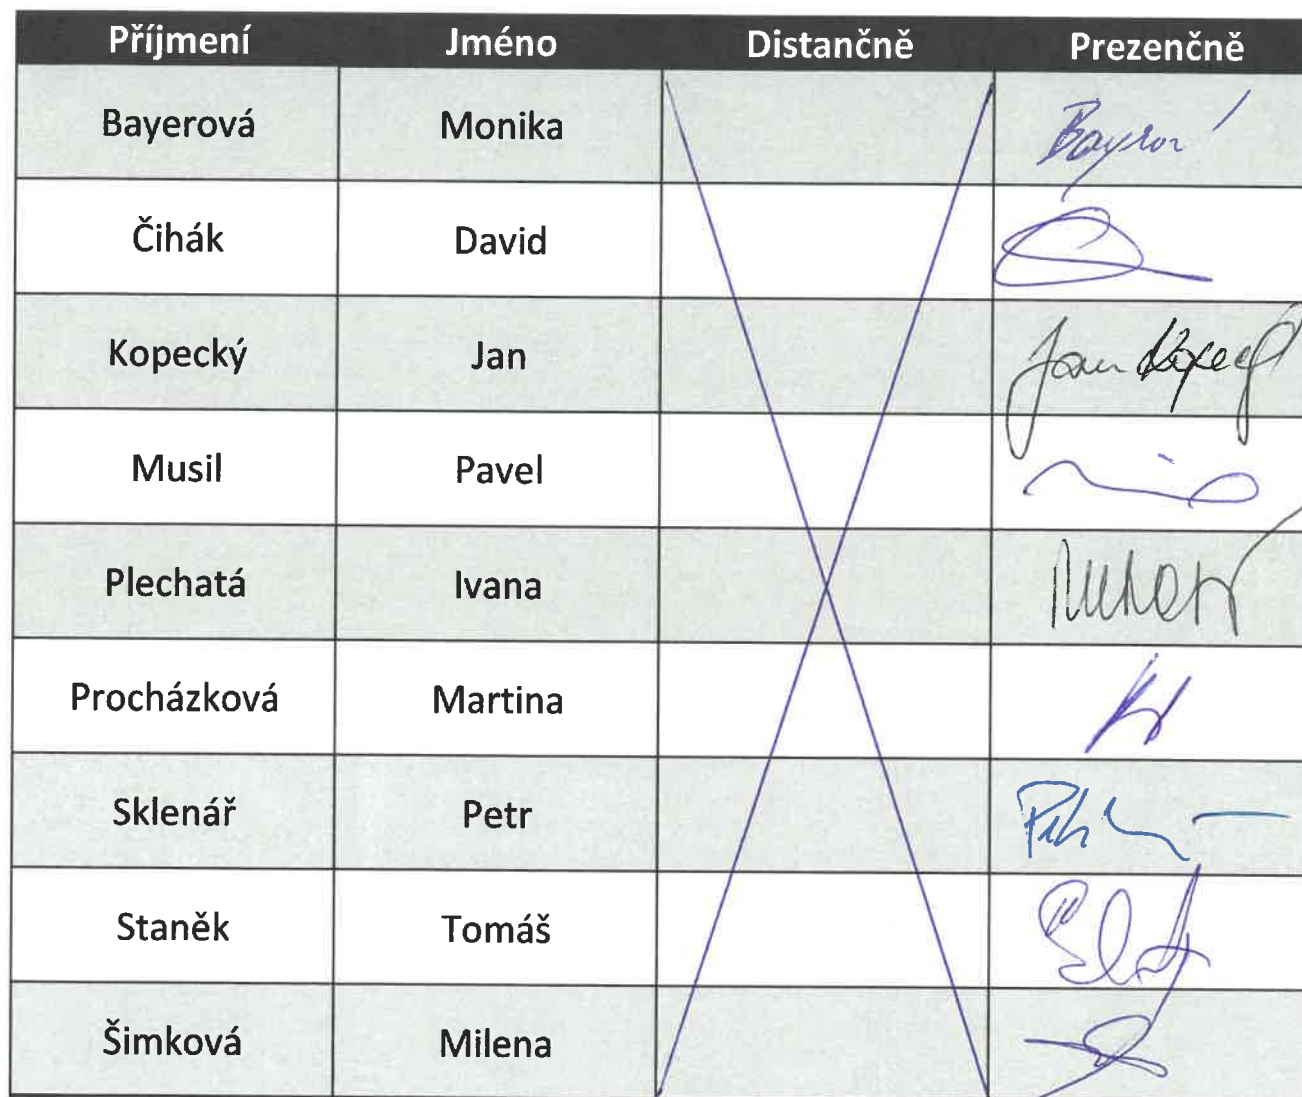 Příjmení Jméno Distančně Prezenčně
Bayerová Monika
Čihák David
Kopecký Jan Jan Kopecký
Musil Pavel
Plechatá Ivana
Procházková Martina
Sklenář Petr
Staněk Tomáš
Šimková Milena